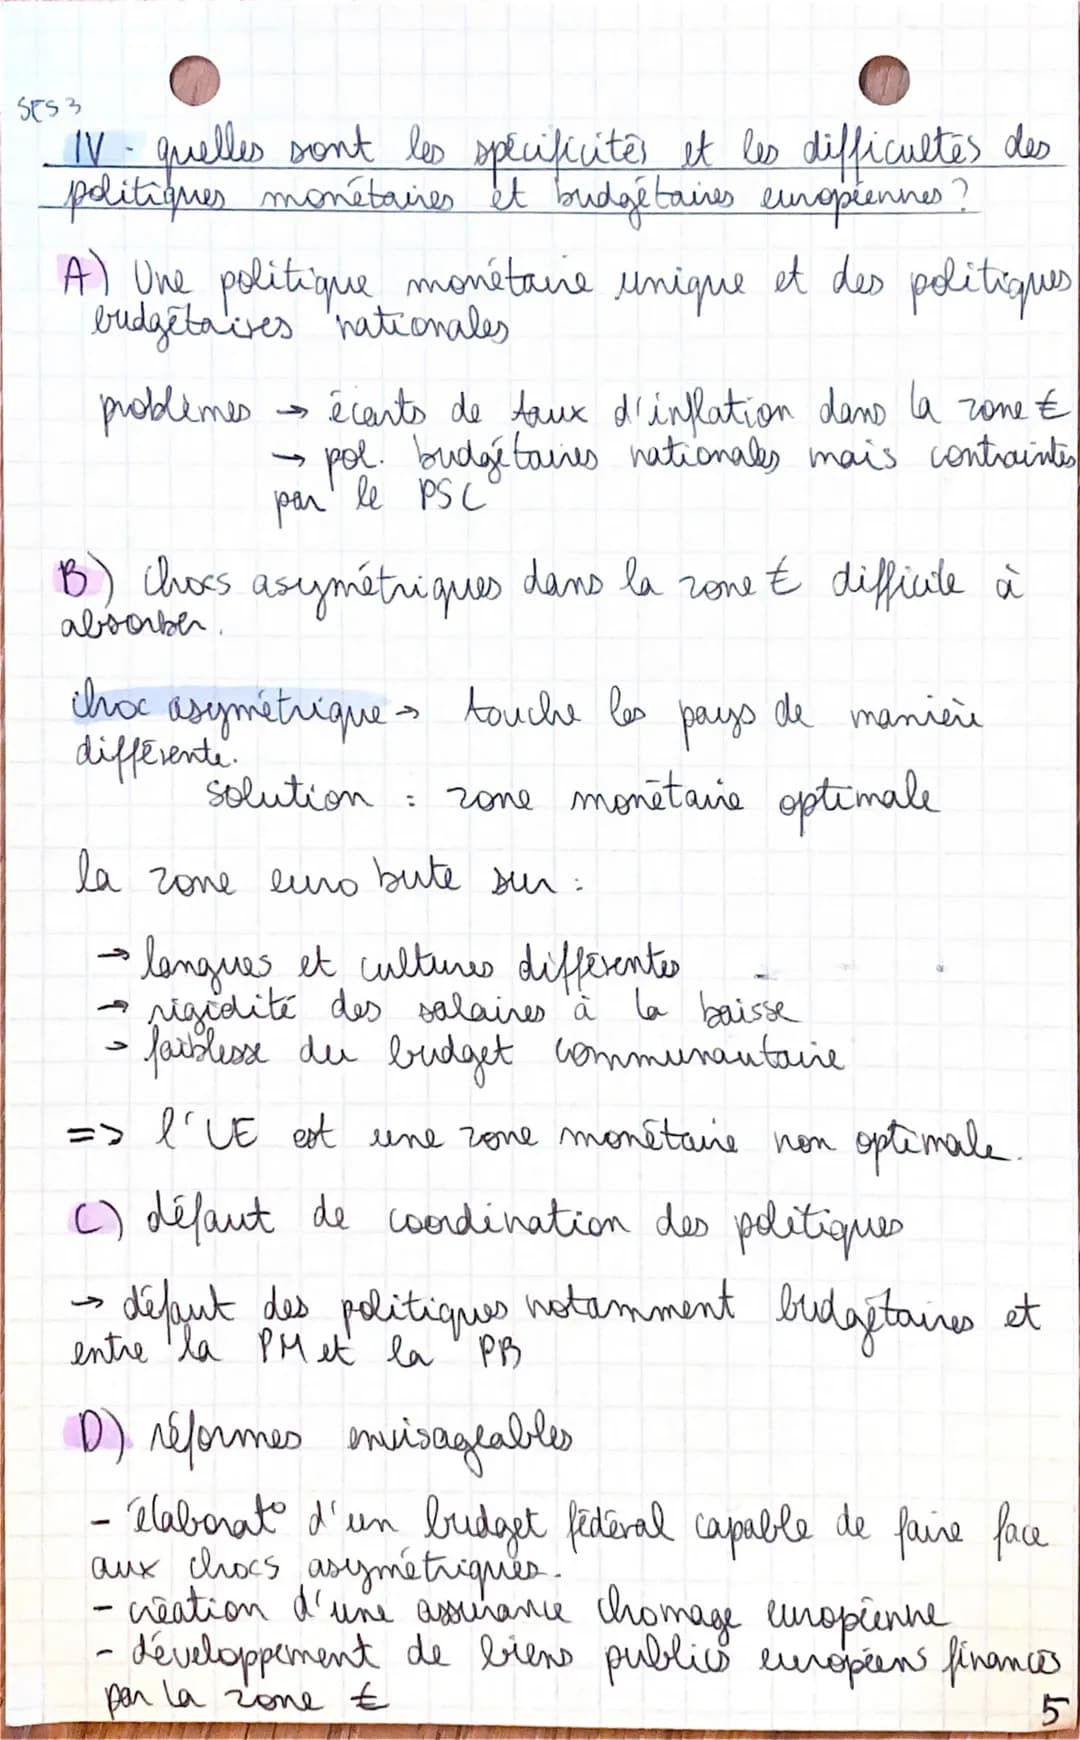 SES 3
IV - quelles sont les spécificités et les difficultés des
politiques monétaires et budgétaires européennes ?
A) Une politique monétaire unique et des politiques
budgétaires nationales
problèmes → écarts de taux d'inflation dans la zone €
→ pol. budgétaires nationales mais contraintes
par le PSC
B) Chocs asymétriques dans la zone € difficile à
absorber.
choc asymétrique → touche les pays de manière
différente.
solution : zone monétaire optimale
la zone euro bute sur :
→ langues et cultures différentes
→ rigidité des salaires à la baisse
→ faiblesse du budget communautaire
=> l'UE est une zone monétaire non optimale.
C) défaut de coordination des politiques
→ défaut des politiques notamment budgétaires et
entre la PM et la PB
D) réformes envisageables
- élaborat° d'un budget fédéral capable de faire face
aux chocs asymétriques.
- création d'une assurance chomage européenne
- développement de biens publics européens financés
par la zone €
5